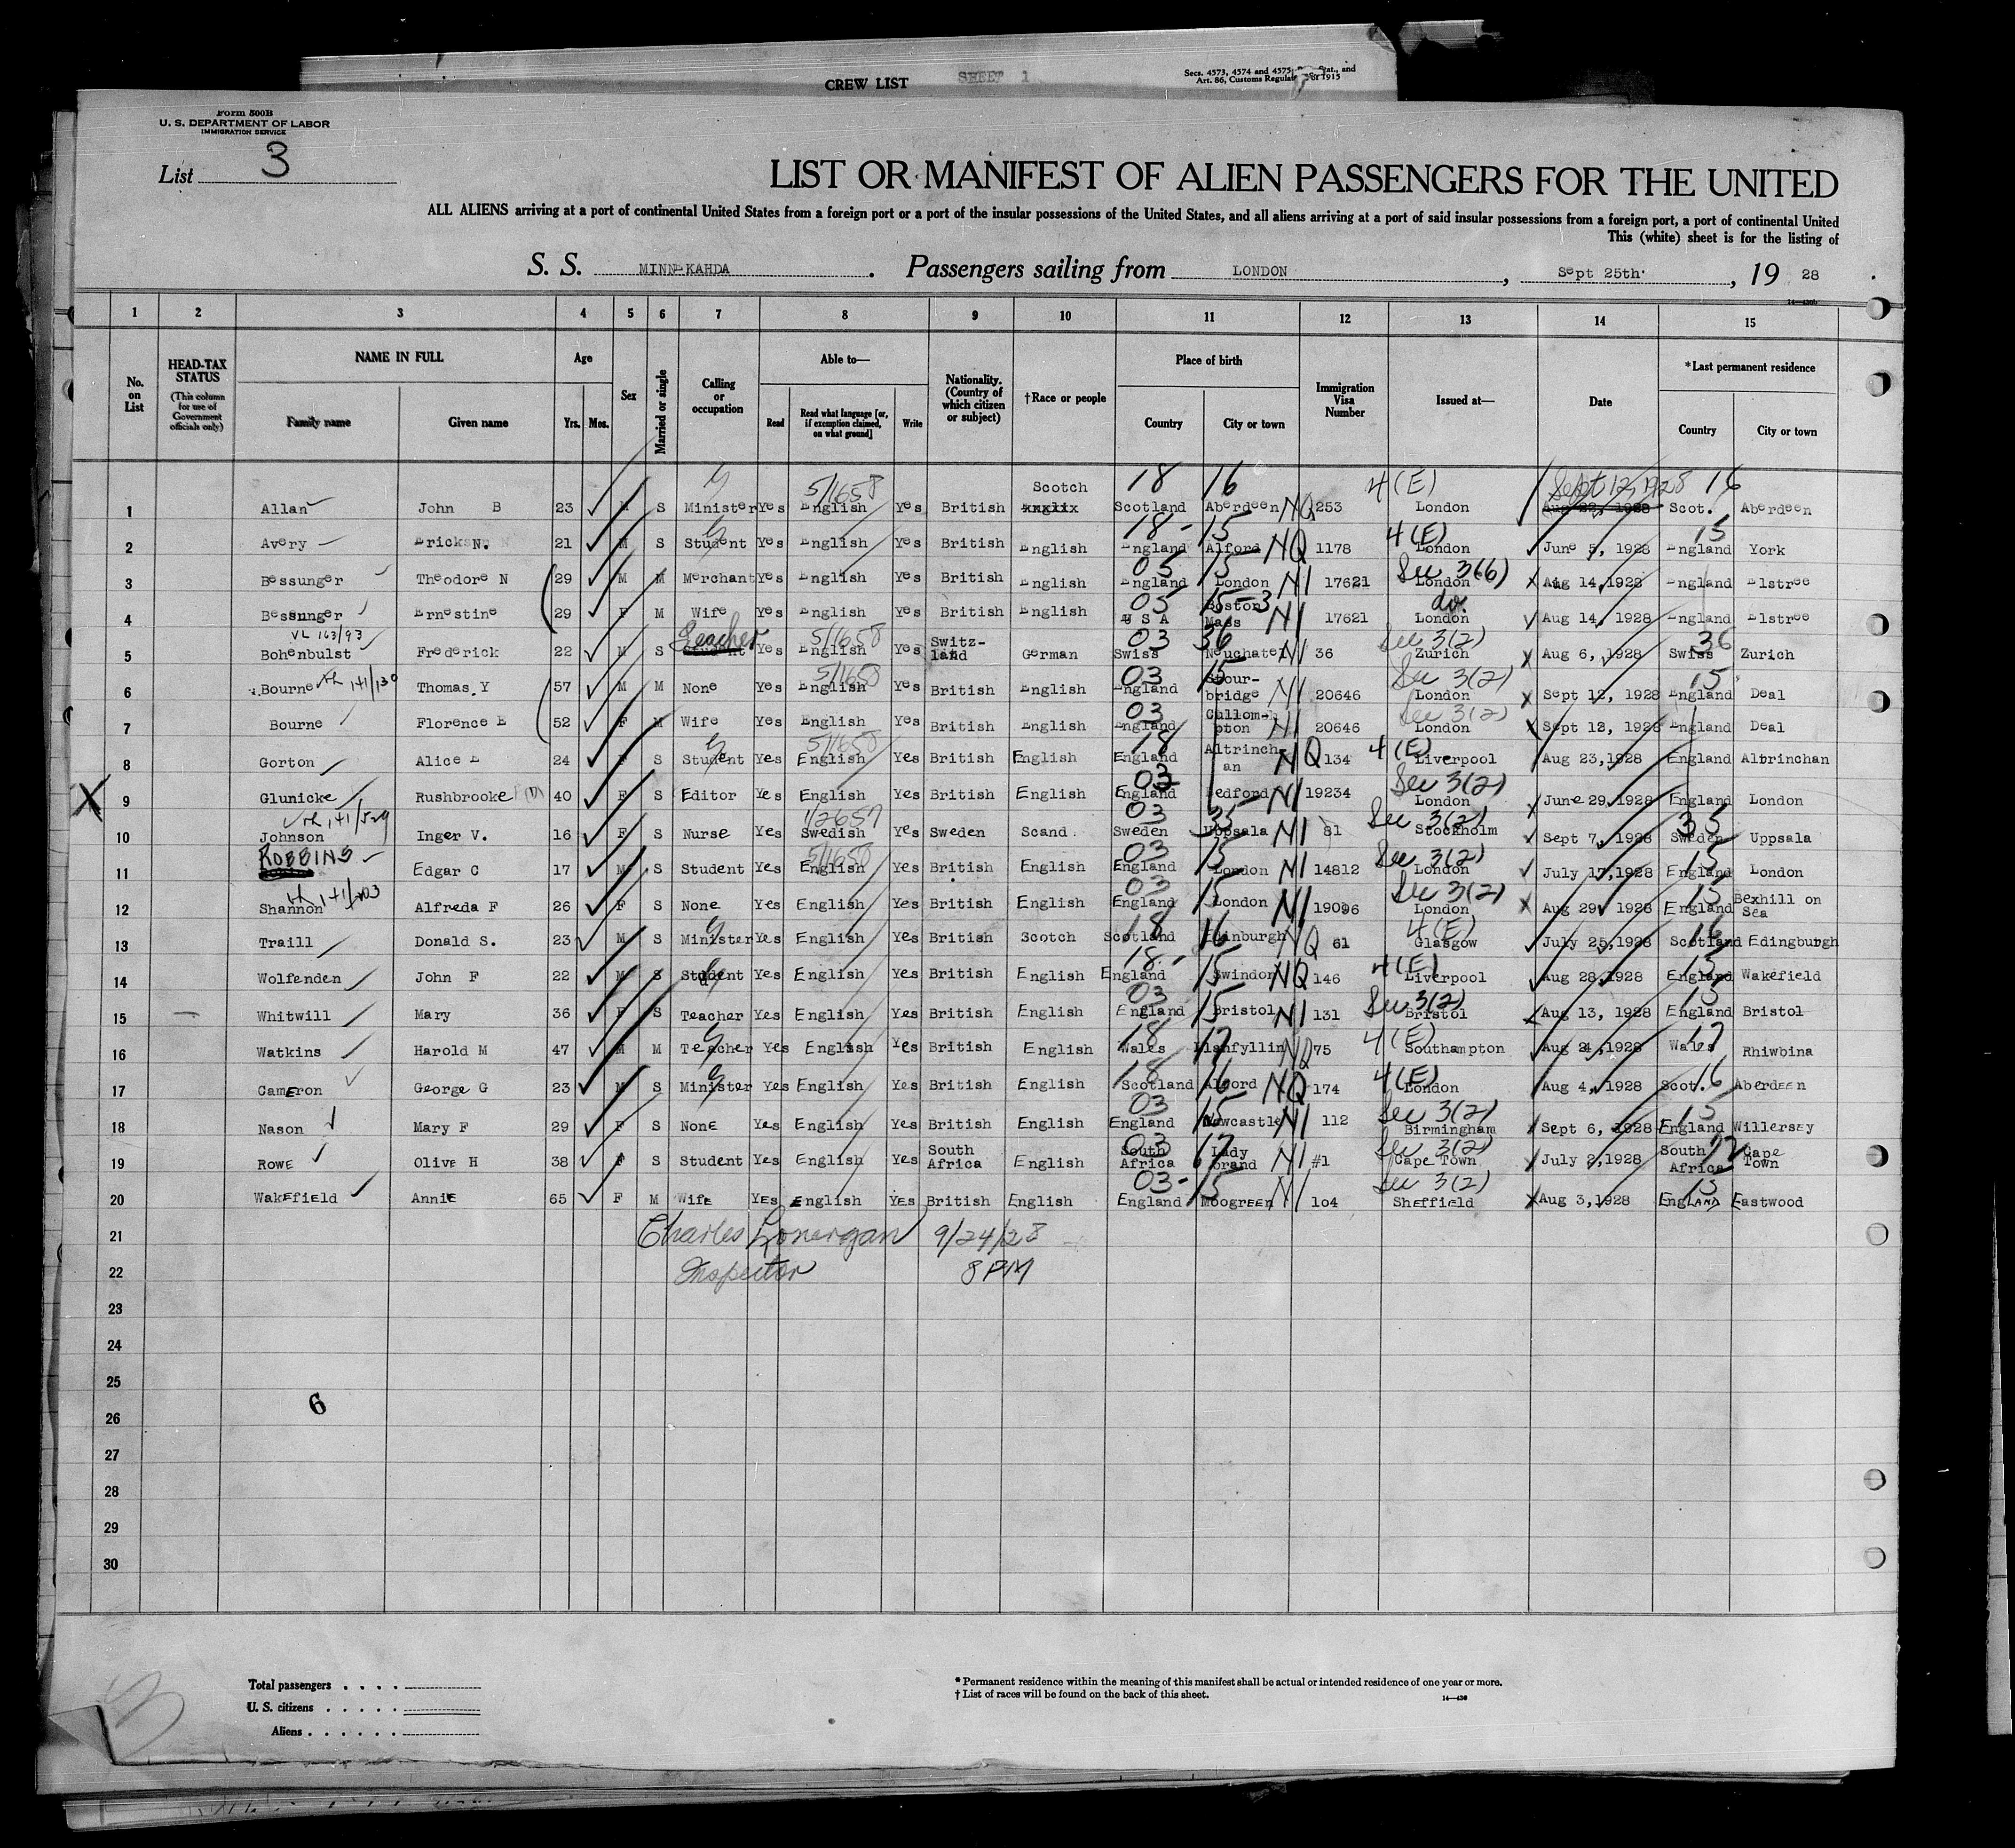 CREW LIST SHEET 1
Secs. 4573, 4574 and 4575, Stat., and
Art. 86, Customs 1915
Form 500B
U. S. DEPARTMENT OF LABOR
IMMIGRATION SERVICE
List 3
LIST OR MANIFEST OF ALIEN PASSENGERS FOR THE UNITED
ALL ALIENS arriving at a port of continental United States from a foreign port or a port of the insular possessions of the United States, and all aliens arriving at a port of said insular possessions from a foreign port, a port of continental United
This (white) sheet is for the listing of
S. S. MINNEKAHDA . Passengers sailing from LONDON , Sept 25th. , 19 28
1 2 3 4 5 6 7 8 9 10 11 12 13 14 15
No. on List HEAD-TAX STATUS (This column for use of Government officials only) NAME IN FULL Family name Given name Age Yrs. Mos. Sex Married or single Calling or occupation Able to— Read Read what language [or, if exemption claimed, on what ground] Write Nationality. (Country of which citizen or subject) †Race or people Place of birth Country City or town Immigration Visa Number Issued at— Date *Last permanent residence Country City or town
5/1658 Scotch 18 16 4(E) Sept 12, 1928 16
1 Allan John B 23 M S Minister Yes English Yes British Scotland Aberdeen NQ 253 London Aug 22, 1928 Scot. Aberdeen
18- 15 4(E) 15
2 Avery Erickson N. 21 M S Student Yes English Yes British English England Alford NQ 1178 London June 5, 1928 England York
05 15 Sec 3(6)
3 Bessunger Theodore N 29 M M Merchant Yes English Yes British English England London NI 17621 London Aug 14, 1928 England Elstree
05 15-3 do.
4 Bessunger Ernestine 29 F M Wife Yes English Yes British English U S A Boston Mass NI 17621 London Aug 14, 1928 England Elstree
VL 163/93 Teacher 5/1658 03 36 Sec 3(2) 36
5 Bohenbulst Frederick 22 M S Student Yes English Yes Switz-land German Swiss Neuchatel NI 36 Zurich Aug 6, 1928 Swiss Zurich
141/130 5/1658 03 15 Sec 3(2) 15
6 Bourne Thomas Y 57 M M None Yes English Yes British English England Stour-bridge NI 20646 London Sept 12, 1928 England Deal
03 Sec 3(2)
7 Bourne Florence E 52 F M Wife Yes English Yes British English England Cullom-pton NI 20646 London Sept 12, 1928 England Deal
5/1658 18 4(E)
8 Gorton Alice E 24 F S Student Yes English Yes British English England Altrinch an NQ 134 Liverpool Aug 23, 1928 England Albrinchan
03 Sec 3(2)
X 9 Glunicke Rushbrooke 40 F S Editor Yes English Yes British English England Bedford NI 19234 London June 29, 1928 England London
141/529 1/2657 03 35 Sec 3(2) 35
10 Johnson Inger V. 16 F S Nurse Yes Swedish Yes Sweden Scand. Sweden Uppsala NI 81 Stockholm Sept 7, 1928 Sweden Uppsala
ROBBINS 5/1658 03 15 Sec 3(2) 15
11 Edgar C 17 M S Student Yes English Yes British English England London NI 14812 London July 17, 1928 England London
141/203 03 15 Sec 3(2) 15
12 Shannon Alfreda F 26 F S None Yes English Yes British English England London NI 19096 London Aug 29 1928 England Bexhill on Sea
18 16 4(E) 16
13 Traill Donald S. 23 M S Minister Yes English Yes British Scotch Scotland Edinburgh NQ 61 Glasgow July 25, 1928 Scotland Edingburgh
18- 15 4(E) 15
14 Wolfenden John F 22 M S Student Yes English Yes British English England Swindon NQ 146 Liverpool Aug 28, 1928 England Wakefield
03 15 Sec 3(2) 15
15 Whitwill Mary 36 F S Teacher Yes English Yes British English England Bristol NI 131 Bristol Aug 13, 1928 England Bristol
18 17 4(E) 17
16 Watkins Harold M 47 M M Teacher Yes English Yes British English Wales Llanfyllin NQ 75 Southampton Aug 24, 1928 Wales Rhiwbina
18 16 4(E) 16
17 Cameron George G 23 M S Minister Yes English Yes British English Scotland Alford NQ 174 London Aug 4, 1928 Scot. Aberdeen
03 15 Sec 3(2) 15
18 Nason Mary F 29 F S None Yes English Yes British English England Newcastle NI 112 Birmingham Sept 6, 1928 England Willersey
03 Sec 3(2) 72
19 Rowe Olive H 38 F S Student Yes English Yes South Africa English South Africa Lady brand NI #1 Cape Town July 2, 1928 South Africa Cape Town
03- 15 Sec 3(2) 15
20 Wakefield Annie 65 F M Wife Yes English Yes British English England Moogreen NI 104 Sheffield Aug 3, 1928 England Eastwood
21 Charles Lonergan 9/24/28
22 Inspector 8 PM
23
24
25
26 6
27
28
29
30
Total passengers . . . .
U. S. citizens . . . . .
Aliens . . . . . .
* Permanent residence within the meaning of this manifest shall be actual or intended residence of one year or more.
† List of races will be found on the back of this sheet.
14—430